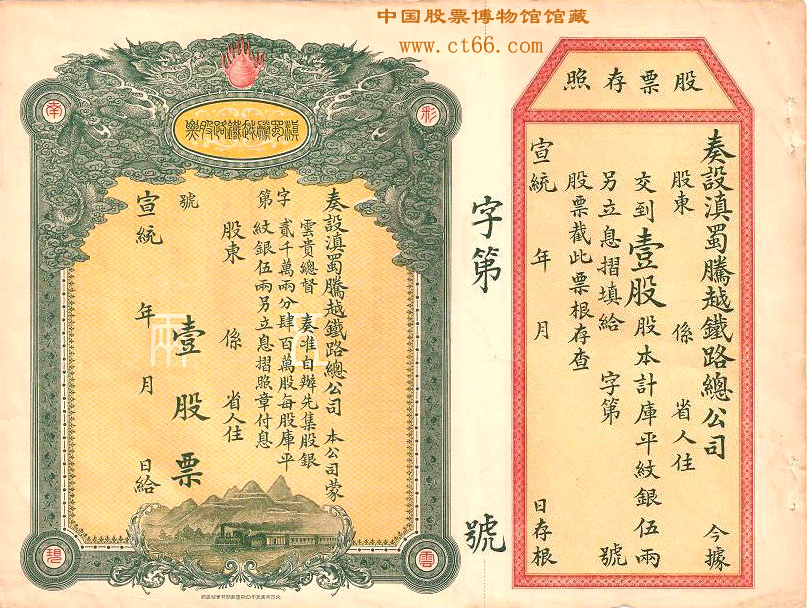 中国股票博物馆馆藏
www.ct66.com
股票存照
奏設滇蜀騰越鐵路總公司 今據
股東 係 省人住
交到壹股股本計庫平紋銀伍兩
另立息摺填給 字第 號
股票截此票根存查
宣統 年 月 日存根
字第 號
滇蜀騰越鐵路股票
南
彩
碧
雲
奏設滇蜀騰越鐵路總公司 本公司蒙
雲貴總督 奏准自辦先集股銀
貳千萬兩分肆百萬股每股庫平
紋銀伍兩另立息摺照章付息
字第 號
股東 係 省人住
壹股票
宣統 年 月 日給
伍兩